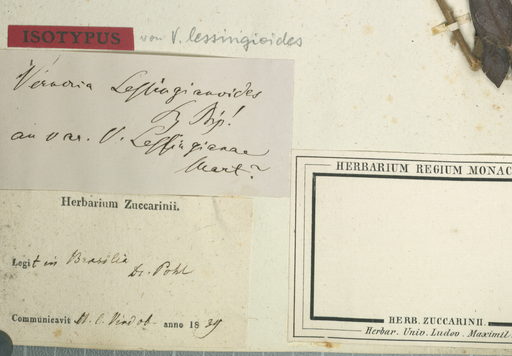 ISOTYPUS von V. lessingioides
Vernonia Lessingianoides
Sz Bip!
an var. V. Lessingianae
Mart.?
Herbarium Zuccarinii.
Legit in Brasilia
Dr. Pohl
Communicavit M. C. Vindob. anno 1839
HERBARIUM REGIUM MONAC
HERB. ZUCCARINII.
Herbar. Univ. Ludov. Maximil.